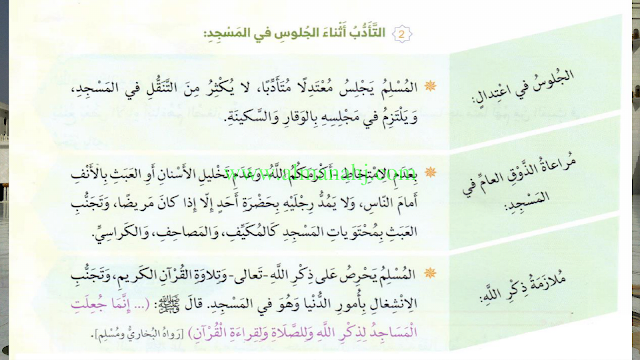 2 التَّأَدُّبُ أَثْناءَ الجُلوسِ في المَسْجِدِ:
الجُلوسُ في اعْتِدالٍ:
المُسْلِمُ يَجْلِسُ مُعْتَدِلًا مُتَأَدِّبًا، لا يُكْثِرُ مِنَ التَّنَقُّلِ في المَسْجِدِ،
وَيَلْتَزِمُ في مَجْلِسِهِ بِالوَقارِ وَالسَّكينَةِ.
مُراعاةُ الذَّوْقِ العامِّ في
المَسْجِدِ:
بِعَدَمِ الِامْتِخاطِ - أَكْرَمَكُمُ اللَّهُ - وَعَدَمِ تَخْليلِ الأَسْنانِ أَوِ العَبَثِ بِالأَنْفِ
أَمامَ النّاسِ، وَلا يَمُدُّ رِجْلَيْهِ بِحَضْرَةِ أَحَدٍ إِلّا إِذا كانَ مَريضًا، وَتَجَنُّبِ
العَبَثِ بِمُحْتَوَياتِ المَسْجِدِ كَالمُكَيِّفِ، وَالمَصاحِفِ، وَالكَراسِيِّ.
مُلازَمَةُ ذِكْرِ اللَّهِ:
المُسْلِمُ يَحْرِصُ عَلى ذِكْرِ اللَّهِ -تَعالى- وَتِلاوَةِ القُرْآنِ الكَريمِ، وَتَجَنُّبِ
الِانْشِغالِ بِأُمورِ الدُّنْيا وَهُوَ في المَسْجِدِ. قالَ ﷺ: (... إِنَّمَا جُعِلَتِ
الْمَسَاجِدُ لِذِكْرِ اللَّهِ وَلِلصَّلاةِ وَلِقِراءَةِ الْقُرْآنِ) [رَواهُ البُخارِيُّ وَمُسْلِم].